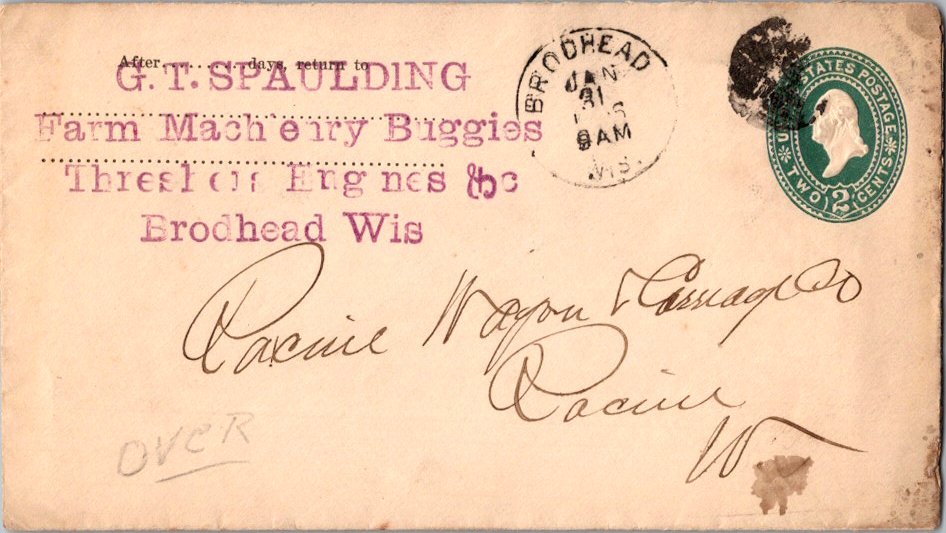 After.......... days, return to
G. T. SPAULDING
Farm Machenry Buggies
Threshers Engines &c
Brodhead Wis
BRODHEAD
JAN
31
8AM
WIS.
UNITED STATES POSTAGE
TWO 2 CENTS
Racine Wagon & Carriage Co
Racine
W
OVER